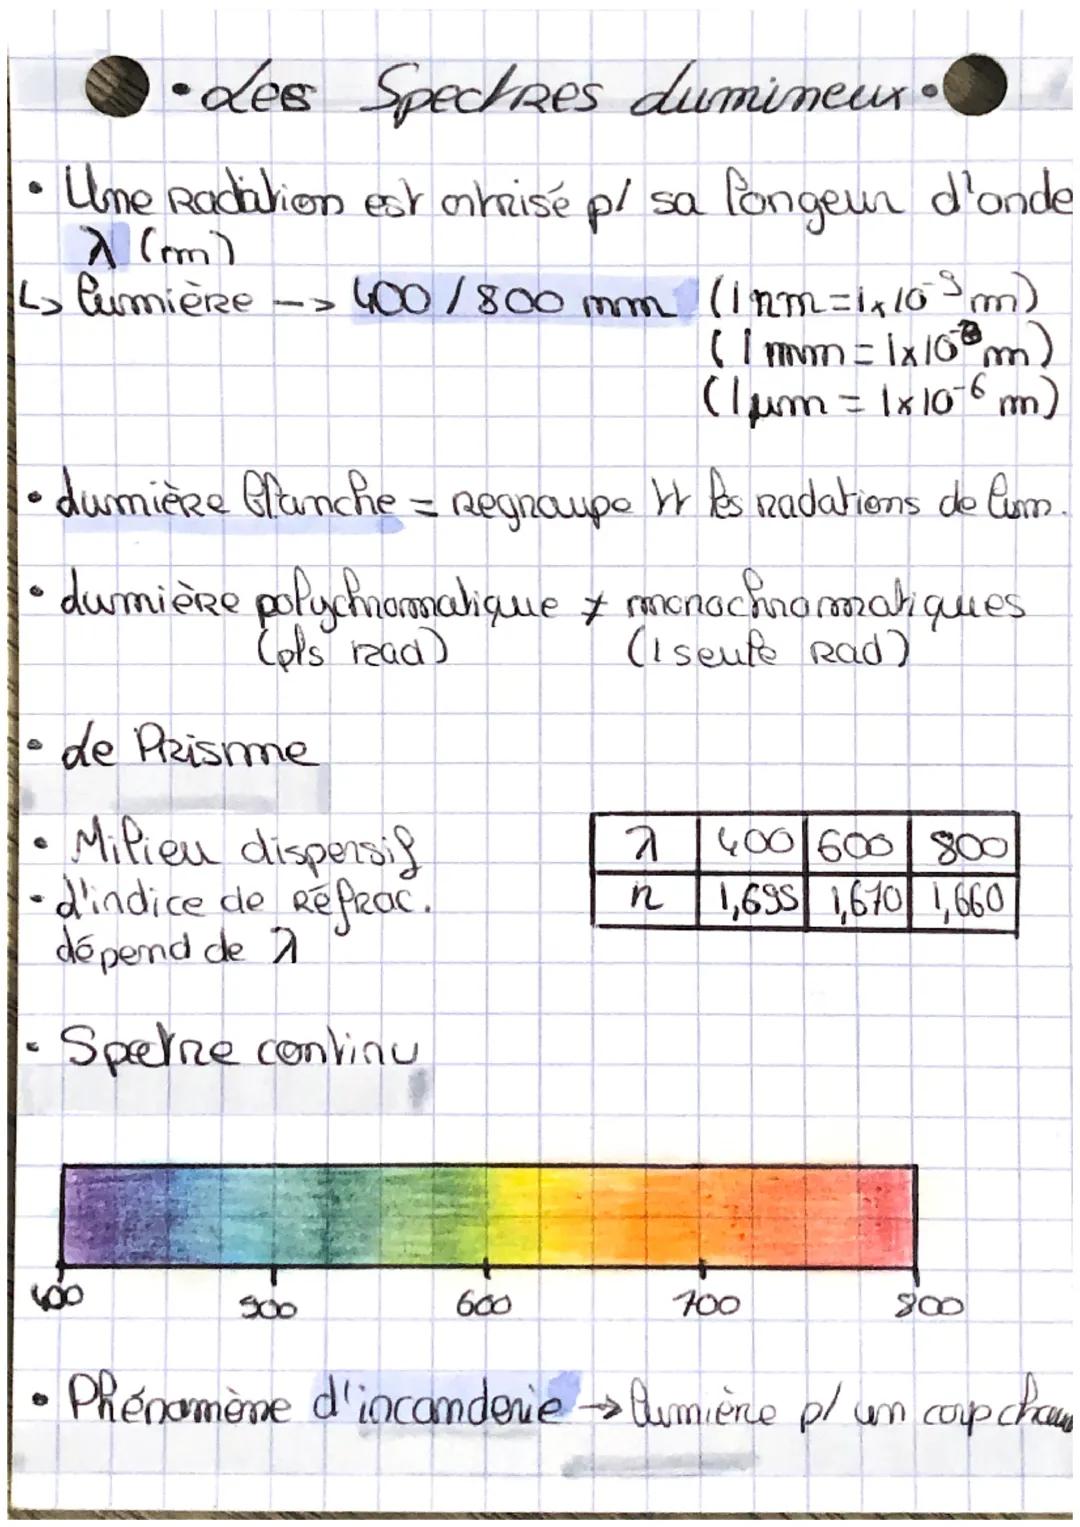 • Les Spectres Lumineux •
• Une Radiation est ctrisé p/ sa longeur d'onde
λ (m)
↳ lumière --> 400 / 800 nm (1 nm = 1x10⁻⁹ m)
(1 mm = 1x10 m)
(1 μm = 1x10⁻⁶ m)
• Lumière blanche = Regroupe tt les radations de lum.
• Lumière polychromatique ≠ monochromatiques
(pls rad) (1 seule Rad)
• Le Prisme
• Milieu dispersif
• L'indice de Réfrac.
dépend de λ
λ 400 600 800
n 1,695 1,670 1,660
• Spectre continu
400 500 600 700 800
• Phénomène d'incandenie → lumière p/ un corp chau